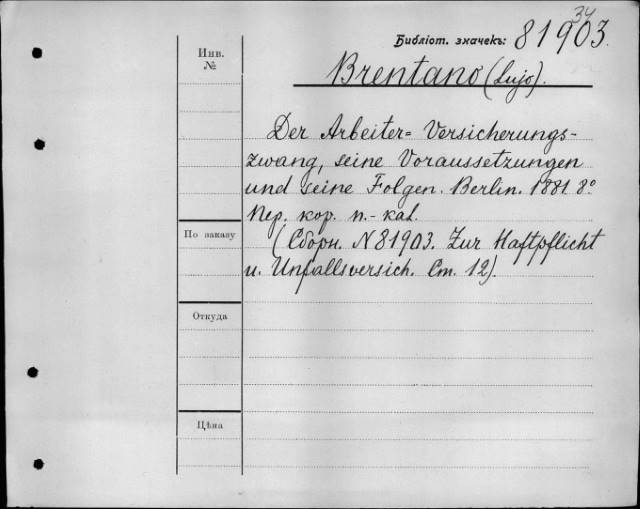 34
Библіот. значекъ: 81903.
Инв.
№
Brentano (Lujo).
Der Arbeiter= Versicherungs-
zwang, seine Voraussetzungen
und seine Folgen. Berlin. 1881. 8º
Пер. кор. п.-кал.
По заказу
(Сборн. N 81903. Zur Haftpflicht
u. Unfallsversich. Ст. 12).
Откуда
Цѣна